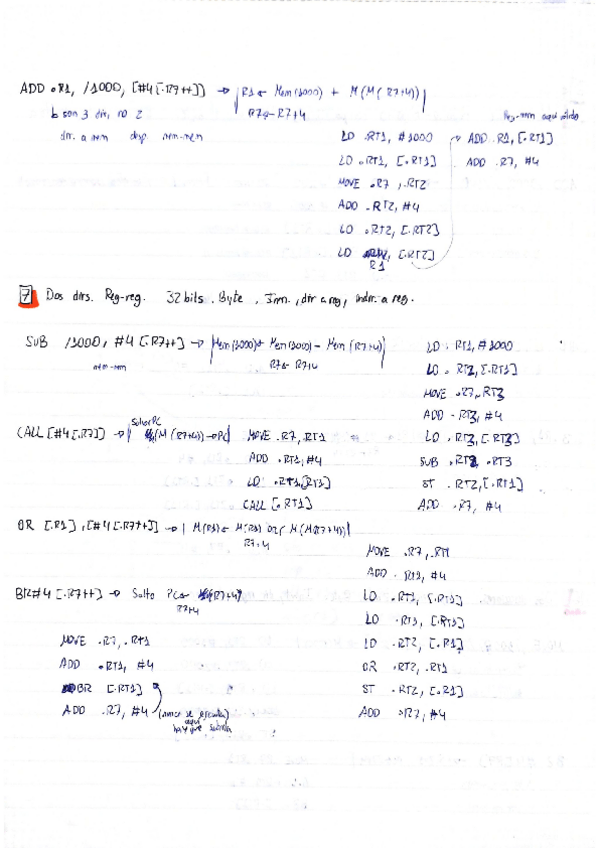 ADD .R1, /1000, [#4[.R7++]] → | R1 ← Mem(1000) + M(M(R7+4)) |
R7 ← R7+4
↳ son 3 dir, no 2
Reg-mem aquí
dir. a mem desp. mem-mem
LD .RT1, #1000
LD .RT1, [.RT1]
MOVE .R7, .RT2
ADD .RT2, #4
LD .RT2, [.RT2]
LD R1, [.RT2]
ADD .R1, [.RT1]
ADD .R7, #4
7 Dos dirs. Reg-reg. 32 bits. Byte. Inm., dir a reg, indir. a reg.
SUB /1000, #4[.R7++] → | Mem(1000) ← Mem(1000) - Mem(R7+4) |
mem-mem R7 ← R7+4
LD .RT1, #1000
LD .RT2, [.RT1]
MOVE .R7, .RT3
ADD .RT3, #4
LD .RT3, [.RT3]
SUB .RT2, .RT3
ST .RT2, [.RT1]
ADD .R7, #4
CALL [#4[.R7]] → | Salvar PC (M(R7+4)) → PC |
MOVE .R7, .RT1
ADD .RT1, #4
LD .RT1, [.RT1]
CALL [.RT1]
OR [.R1], [#4[.R7++]] → | M(R1) ← M(R1) or M(M(R7+4)) |
R7+4
MOVE .R7, .RT1
ADD .RT1, #4
LD .RT1, [.RT1]
LD .RT1, [.RT1]
LD .RT2, [.R1]
OR .RT2, .RT1
ST .RT2, [.R1]
ADD .R7, #4
BR #4[.R7++] → Salto PC ← (R7+4)
R7+4
MOVE .R7, .RT1
ADD .RT1, #4
BR [.RT1]
ADD .R7, #4 (nunca se ejecuta)
aquí
hay que subirla